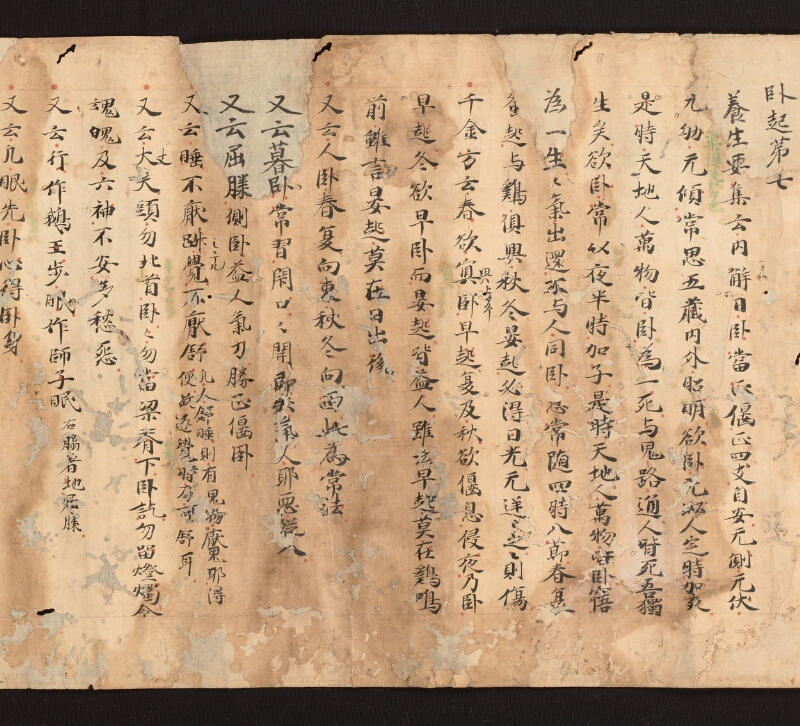 卧起第七
養生要集云内解曰卧當正偃正四支自安元側元伏
元劬元傾常思五藏内外昭明欲卧元以人定時加亥
是時天地人萬物皆卧為一死与鬼路通人皆死吾獨
生矣欲卧常以夜半時加子是時天地人萬物皆卧寤
為一生々氣出還不与人同卧恒常随四時八節春夏
蚤起与鷄俱興秋冬晏起必得日光元逆之々則傷
千金方云春欲冥卧早起夏及秋欲偃息侵夜乃卧
早起冬欲早卧而晏起皆益人雖云早起莫在鷄鳴
前雖言晏起莫在日出後
又云人卧春夏向東秋冬向西此為常法
又云暮卧常習閇口々開即失氣人耶惡従入
又云屈膝側卧益人氣力勝正偃卧
又云睡不厭踧覺不厭舒凡人舒睡則有鬼物魘耶得
便故逐覺時乃可舒耳
又云丈夫頭勿北首卧々勿當梁脊下卧訖勿留燈燭令
魂魄及六神不安多愁怨
又云行作鵝王步眠作師子眠右脇著地屈膝
又云凡眠先卧心得卧身